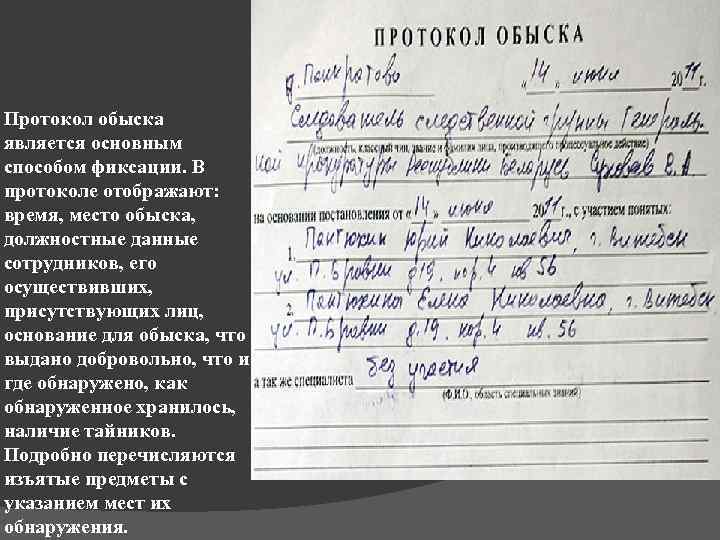 Протокол обыска
является основным
способом фиксации. В
протоколе отображают:
время, место обыска,
должностные данные
сотрудников, его
осуществивших,
присутствующих лиц,
основание для обыска, что
выдано добровольно, что и
где обнаружено, как
обнаруженное хранилось,
наличие тайников.
Подробно перечисляются
изъятые предметы с
указанием мест их
обнаружения.
ПРОТОКОЛ ОБЫСКА
д. Панкратово « 14 » июня 2011 г.
Следователь следственной группы Генераль
(должность, классный чин, звание и фамилия лица, производящего процессуальное действие)
ной прокуратуры Республики Беларусь Суховей С.А.
на основании постановления от « 14 » июня 2011 г., с участием понятых:
1. Пантюхин Юрий Николаевич, г. Витебск
ул. П. Бровки д.19, кор.4 кв 56
2. Пантюхина Елена Николаевна, г. Витебск,
ул. П. Бровки д.19, кор.4 кв. 56
а так же специалиста без участия
(Ф.И.О., область специальных знаний)